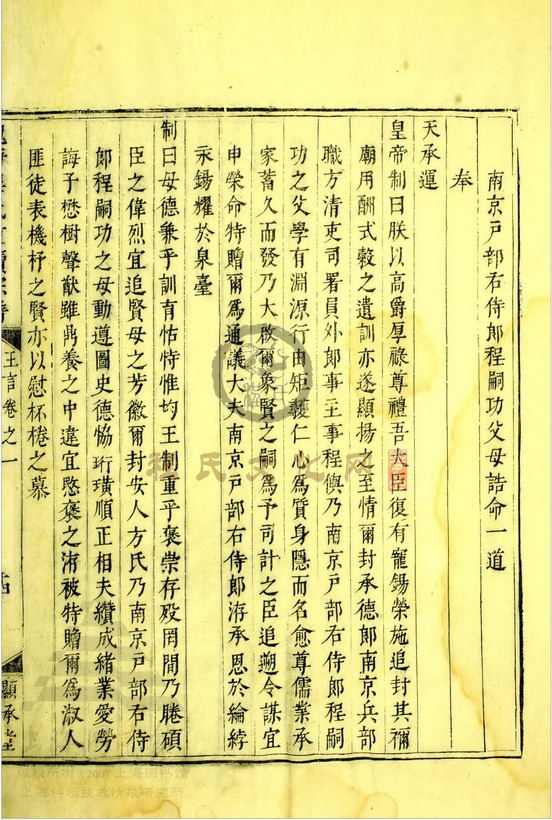 南京戶部右侍郎程嗣功父母誥命一道
奉
天承運
皇帝制曰朕以高爵厚祿尊禮吾大臣復有寵錫榮施追封其禰
廟用酬式穀之遺訓亦遂顯揚之至情爾封承德郎南京兵部
職方清吏司署員外郎事主事程偰乃南京戶部右侍郎程嗣
功之父學有淵源行由矩矱仁心為質身隱而名愈尊儒業承
家蓄久而發乃大啟爾象賢之嗣為予司計之臣追遡令謀宜
申榮命特贈爾為通議大夫南京戶部右侍郎洊承恩於綸綍
永錫耀於泉臺
制曰母德兼乎訓育怙恃惟均王制重乎褒崇存歿罔間乃睠碩
臣之偉烈宜追賢母之芳徽爾封安人方氏乃南京戶部右侍
郎程嗣功之母動遵圖史德恊珩璜順正相夫纘成緒業愛勞
誨子懋樹聲猷雖鼎養之中違宜愍褒之洊被特贈爾為淑人
匪徒表機杼之賢亦以慰杯棬之慕
王言卷之一
顯承堂
程氏文化网
2007上海图书馆
上海科学技术情报研究所